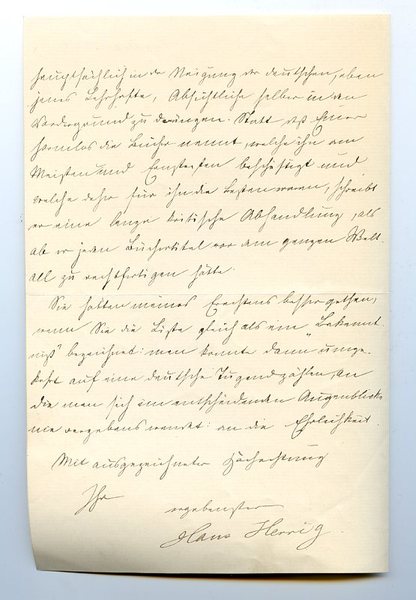 hauptsächlich in der Neigung der deutschen, eben
jenes Lehrhafte, Absichtliche selber in den
Vordergrund zu drängen. Statt daß Einer
harmlos die Bücher nennt, welche ihn am
Meisten und Ernstesten beschäftigt und
welche daher für ihn die besten waren, schreibt
er eine lange kritische Abhandlung, als
ob er jeden Büchertitel vor dem ganzen Welt-
all zu rechtfertigen hätte.
Sie hätten meines Erachtens besser gethan,
wenn Sie die Liste gleich als ein "Bekennt-
niß" bezeichnet: man konnte dann umge-
kehrt auf eine deutsche Tugend zählen, an
die man sich im entscheidenden Augenblicke
nie vergebens wendet: an die Ehrlichkeit.
Mit ausgezeichneter Hochachtung
Ihr
ergebenster
Hans Herrig.